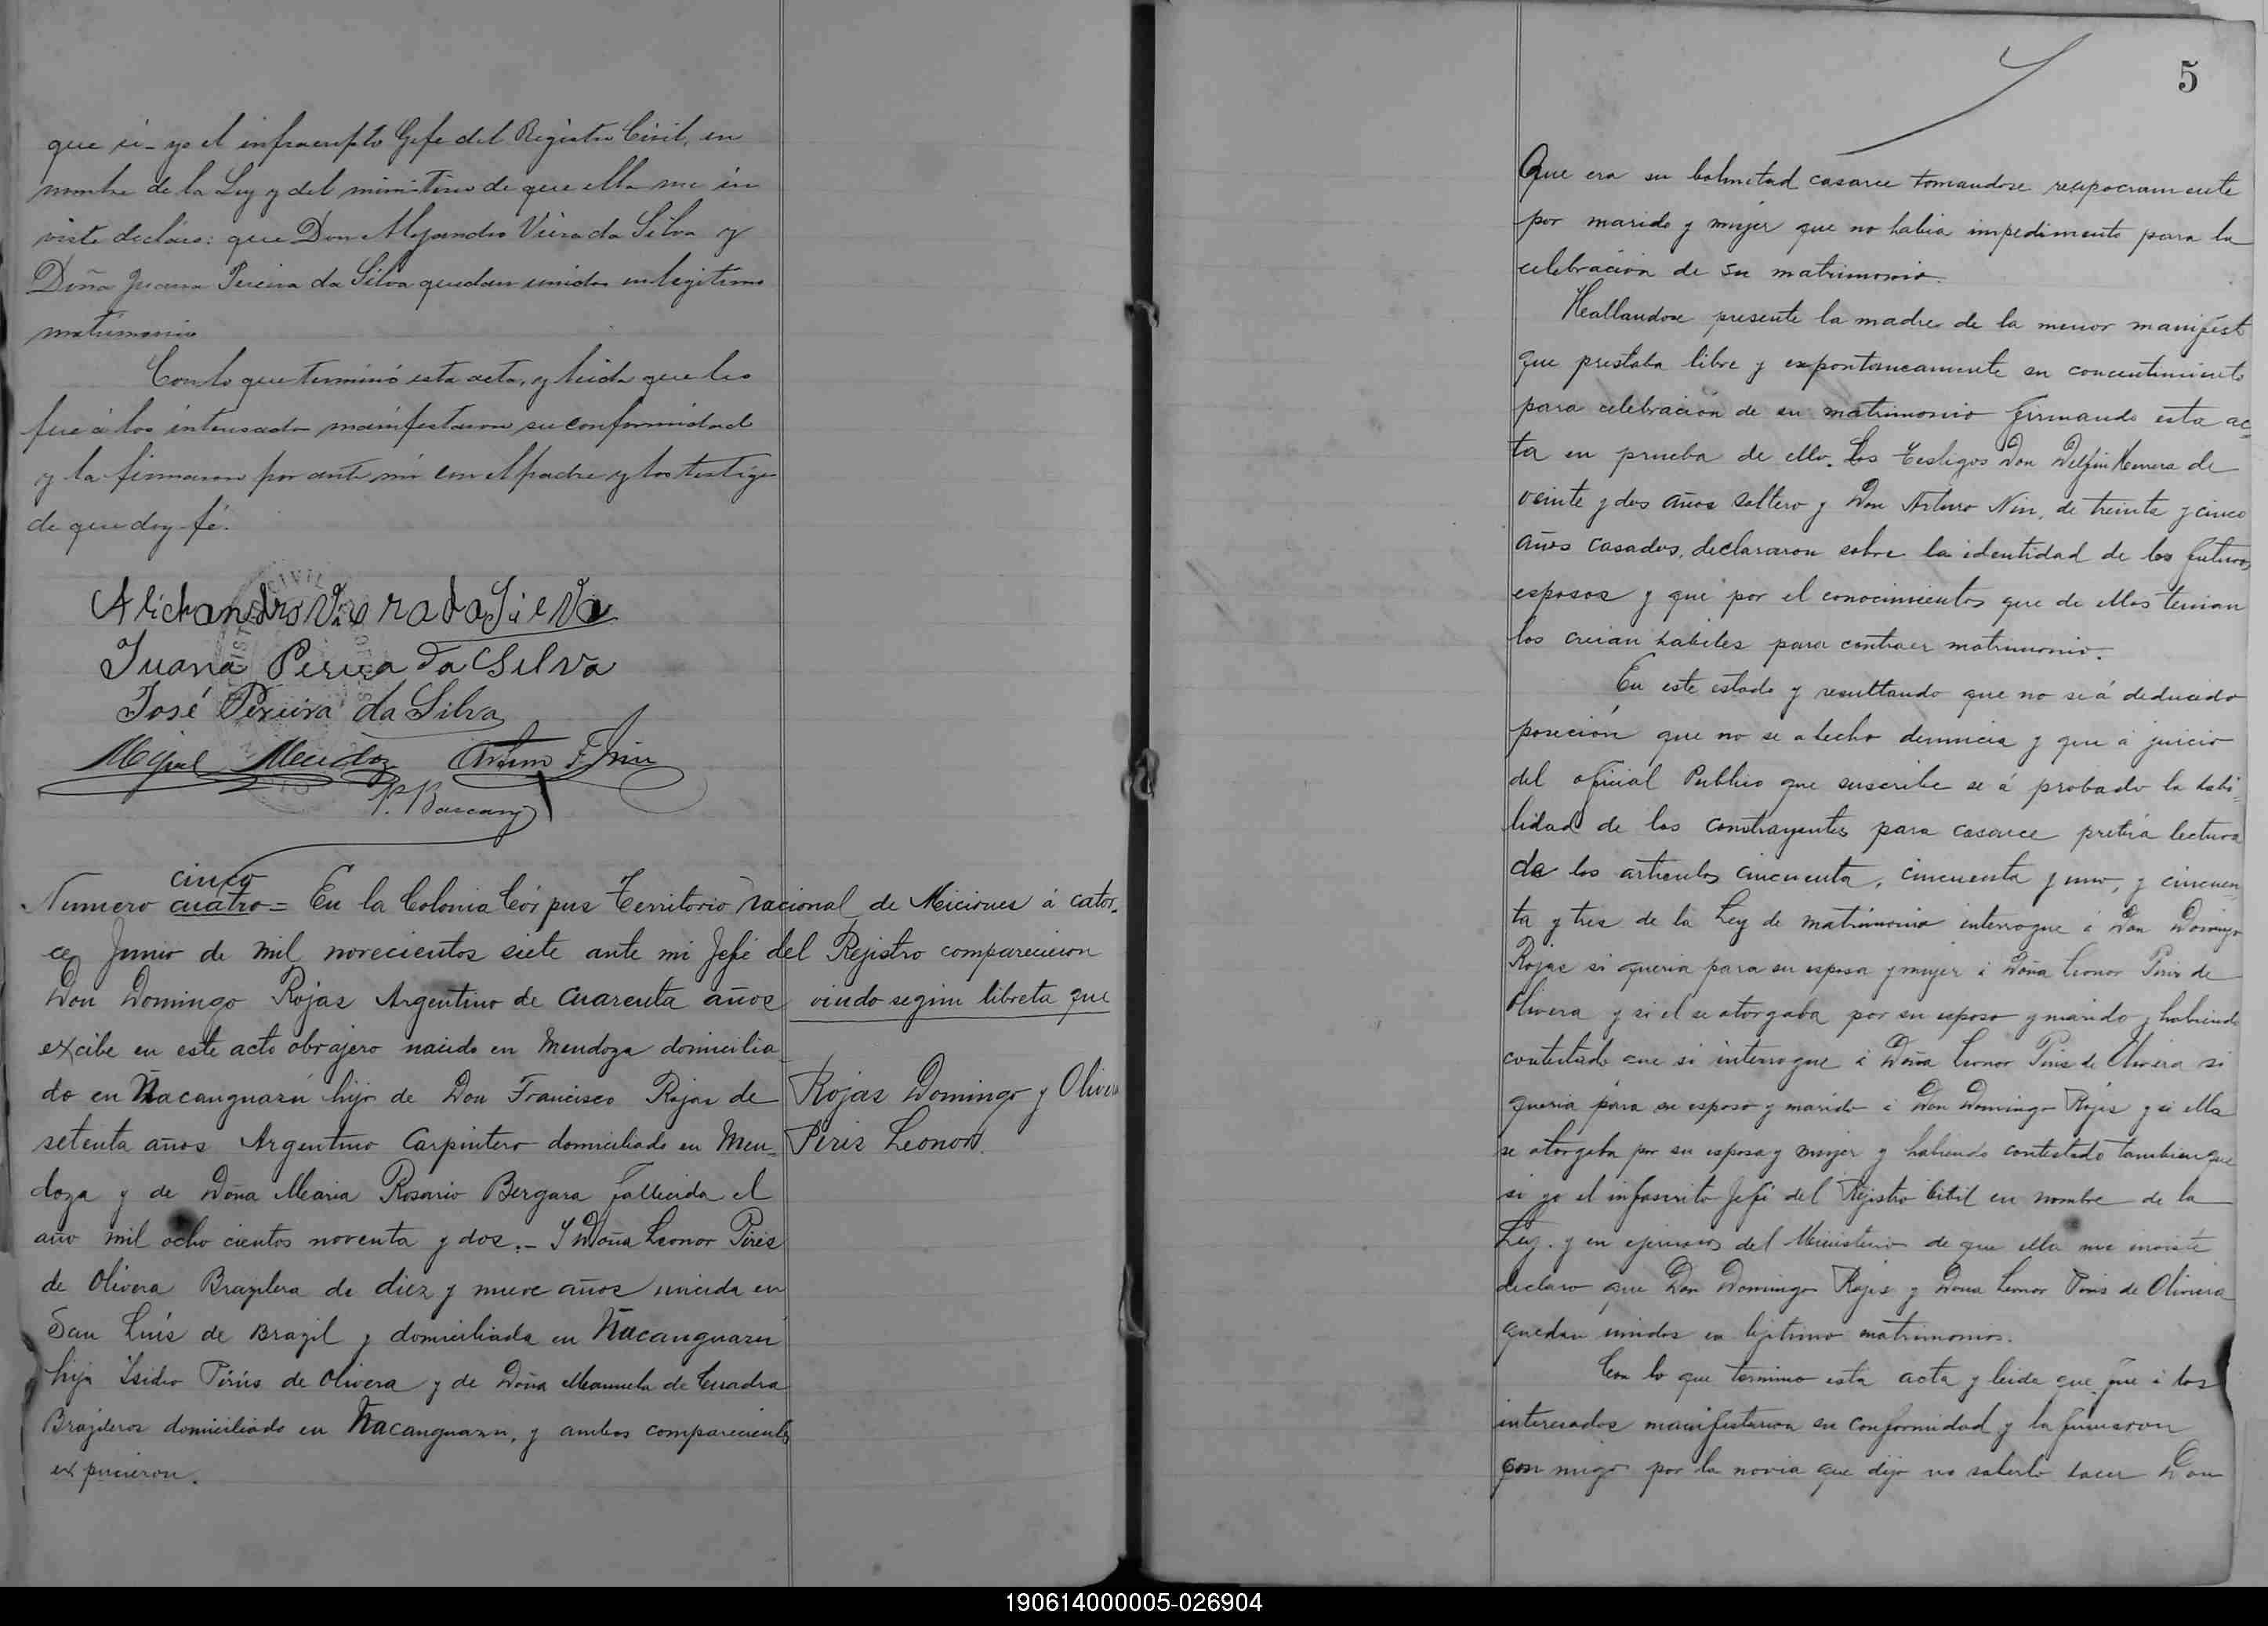 que si - yo el infraescrito Gefe del Registro Civil, en
nombre de la Ley y del ministerio de que ella me in
viste declaro: que Don Alejandro Viera da Silva y
Doña Juana Pereira da Silva quedan unidos en legitimo
matrimonio
Con lo que terminó esta acta, y leida que les
fue á los interesados manifestaron su conformidad
y la firmaron por ante mi con el padre y los testigos
de que doy fé.
Alichandro Viera da Silva
Juana Pereira da Silva
José Pereira da Silva
Migel Mendoz Arturo F. Nin
P. Barcany
cinco
Numero cuatro = En la Colonia Córpus Territorio Nacional de Miciones á cator-
ce Junio de mil novecientos siete ante mi Jefe del Rejistro comparecieron
Don Domingo Rojas Argentino de cuarenta años viudo segun libreta que
excibe en este acto obrajero nacido en Mendoza domicilia-
do en Ñacanguazú hijo de Don Francisco Rojas de
setenta años Argentino Carpintero domiciliado en Men-
doza y de Doña Maria Rosario Bergara fallecida el
año mil ocho cientos noventa y dos. - Y Doña Leonor Piris
de Olivera Brazilera de diez y nueve años nacida en
San Luis de Brazil y domiciliada en Ñacanguazú
hija Isidro Piris de Olivera y de Doña Manuela de Cuadra
Brazileros domiciliado en Ñacanguazu, y ambos comparecientes
expucieron.
Rojas Domingo y Olivera
Piris Leonor.
5
Que era su boluntad casarce tomandose resiprocramente
por marido y mujer que no habia impedimento para la
celebración de su matrimonio.
Heallandose presente la madre de la menor manifest
que prestaba libre y expontaneamente su concentimiento
para celebración de su matrimonio firmando esta ac-
ta en prueba de ello. Los Testigos Don Delfin Herrera de
veinte y dos años soltero y Don Arturo Nin, de treinta y cinco
años casados, declararon sobre la identidad de los futuros
esposos y que por el conocimientos que de ellos tenian
los creian habiles para contraer matrimonio.
En este estado y resultando que no se á deducido
posicion que no se a hecho denuncia y que á juicio
del oficial Publico que suscribe se á probado la habi-
lidad de los contrayentes para casarce prévia lectura
de los articulos cincuenta, cincuenta y uno, y cincuen-
ta y tres de la Ley de matrimonio interrogue á Don Domingo
Rojas si queria para su esposa y mujer á Doña Leonor Piris de
Olivera y si el se otorgaba por su esposo y marido y habiendo
contestado que si interrogue á Doña Leonor Piris de Olivera si
queria para su esposo y marido á Don Domingo Rojas y si ella
se otorgaba por su esposa y mujer y habiendo contestado tambien que
si yo el infascrito Jefe del Rejistro Civil en nombre de la
Ley. y en ejercicio del Ministerio de que ella me inviste
declaro que Don Domingo Rojas y Doña Leonor Piris de Oliviera
quedan unidos en lejitimo matrimonio.
Con lo que termino esta acta y leida que fue á los
interesados manifestaron su conformidad y la firmaron
con migo por la novia que dijo no saberlo hacer Don
190614000005-026904